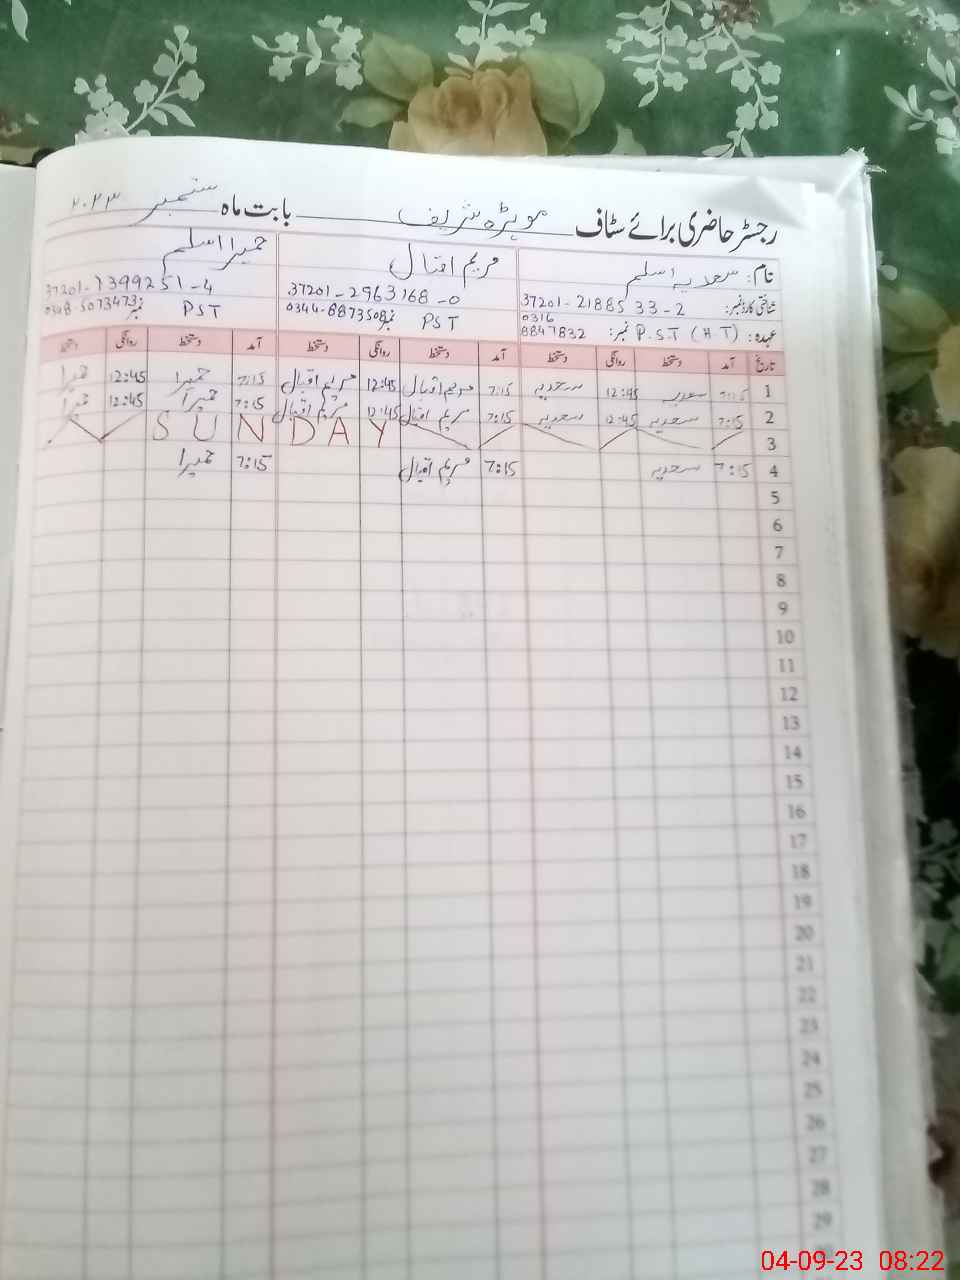 رجسٹر حاضری برائے سٹاف موہڑہ شریف بابت ماہ ستمبر ۲۰۲۳
نام: سعدیہ اسلم مریم اقبال حمیرا اسلم
شناختی کارڈ نمبر: 37201-2188533-2 37201-2963168-0 37201-7399251-4
عہدہ: P.S.T (H.T) نمبر: 0316 8847832 PST نمبر 0344-8873508 PST نمبر 0348-5073473
تاریخ آمد دستخط روانگی دستخط آمد دستخط روانگی دستخط آمد دستخط روانگی دستخط
1 7:15 سعدیہ 12:45 سعدیہ 7:15 مریم اقبال 12:45 مریم اقبال 7:15 حمیرا 12:45 حمیرا
2 7:15 سعدیہ 12:45 سعدیہ 7:15 مریم اقبال 12:45 مریم اقبال 7:15 حمیرا 12:45 حمیرا
3 SUNDAY
4 7:15 سعدیہ 7:15 مریم اقبال 7:15 حمیرا
5
6
7
8
9
10
11
12
13
14
15
16
17
18
19
20
21
22
23
24
25
26
27
28
29
04-09-23 08:22